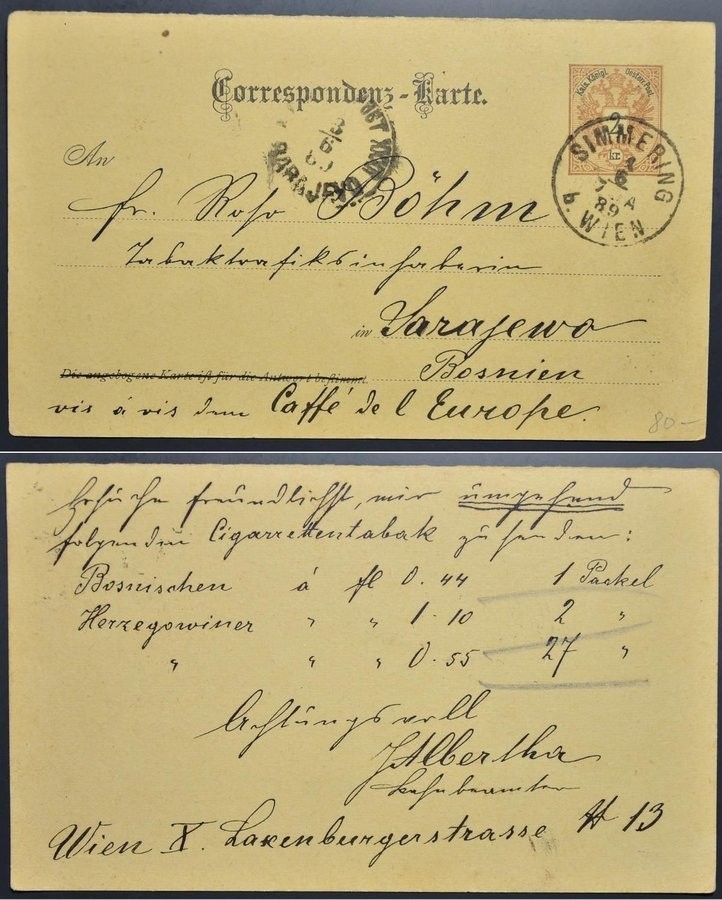 Correspondenz-Karte.
Kais. Königl. Oesterr. Post
2 kr
SIMMERING
6
89
b. WIEN
3
6
SARAJEVO
An
Fr. Rosa Böhm
Tabaktrafiksinhaberin
in Sarajewo
Bosnien
Die angebogene Karte ist für die Antwort bestimmt
vis á vis dem Caffé de l Europe.
80-
Ersuche freundlichst, mir umgehend
folgenden Cigarrettentabak zu senden:
Bosnischen á fl 0.44 1 Packel
Herzegowiner " " 1.10 2 "
" " " 0.55 27 "
Achtungsvoll
JAlbertha
Wien X. Laxenburgerstrasse # 13